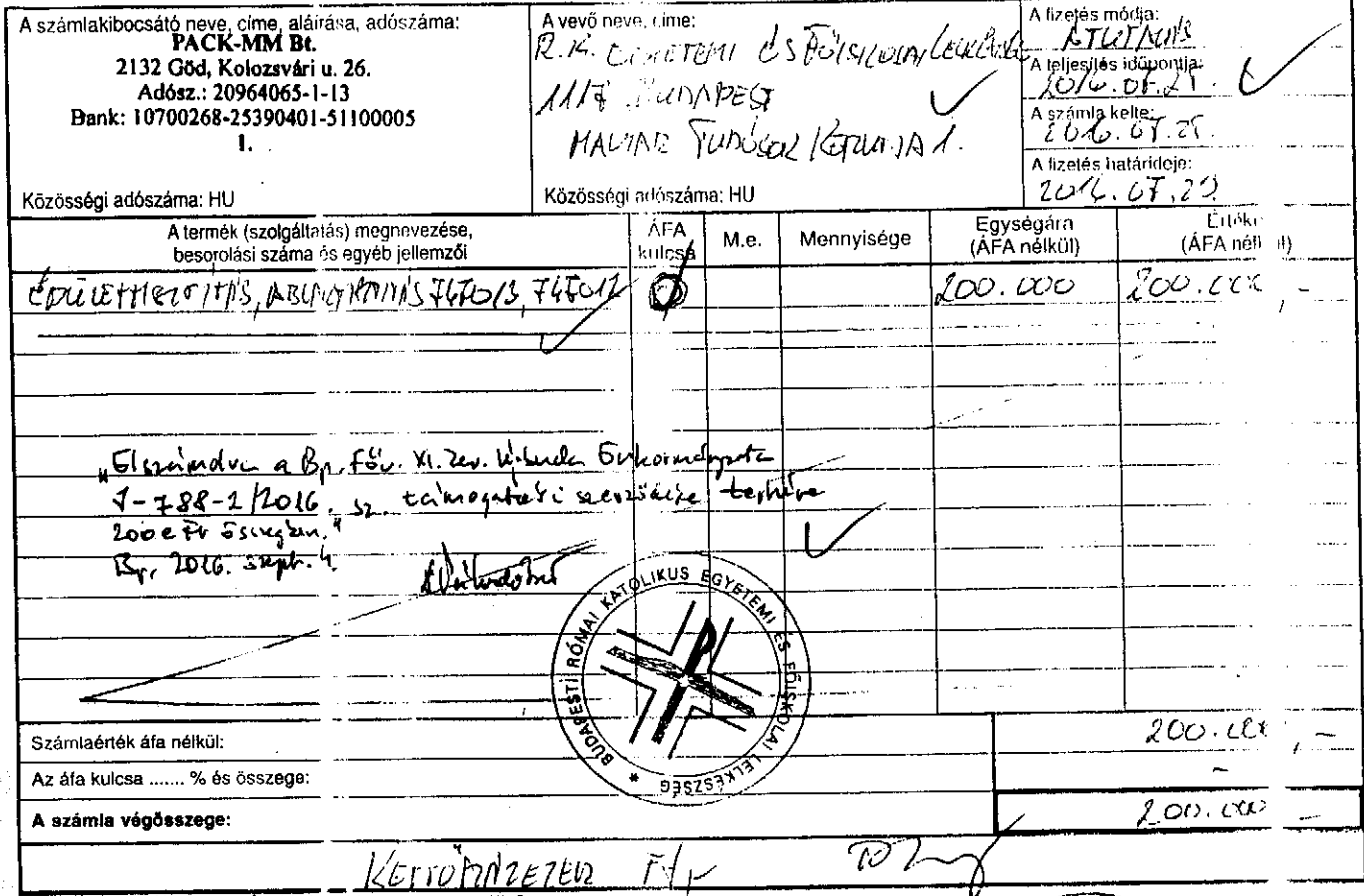 A számlakibocsátó neve, címe, aláírása, adószáma:
PACK-MM Bt.
2132 Göd, Kolozsvári u. 26.
Adósz.: 20964065-1-13
Bank: 10700268-25390401-51100005
1.
Közösségi adószáma: HU
A vevő neve, címe:
R.K. EGYETEMI ÉS FŐISKOLAI LELKÉSZSÉG
1117 BUDAPEST
MAGYAR TUDÓSOK KÖRÚTJA 1.
Közösségi adószáma: HU
A fizetés módja:
ÁTUTALÁS
A teljesítés időpontja:
2016.07.21.
A számla kelte:
2016.07.21.
A fizetés határideje:
2016.07.29.
A termék (szolgáltatás) megnevezése,
besorolási száma és egyéb jellemzői
ÁFA
kulcsa
M.e.
Mennyisége
Egységára
(ÁFA nélkül)
Értéke
(ÁFA nélkül)
747013, 747012
0
200.000
200.000,-
„Elszámolva a Bp. Főv. XI. ker. Újbuda Önkormányzata
J-788-2/2016. sz. támogatási szerződése terhére
200 e Ft összegben."
Bp, 2016. szept. 4.
BUDAPESTI RÓMAI KATOLIKUS EGYETEMI ÉS FŐISKOLAI LELKÉSZSÉG *
Számlaérték áfa nélkül:
200.000,-
Az áfa kulcsa ....... % és összege:
-
A számla végösszege:
200.000 -
KETTŐSZÁZEZER Ft